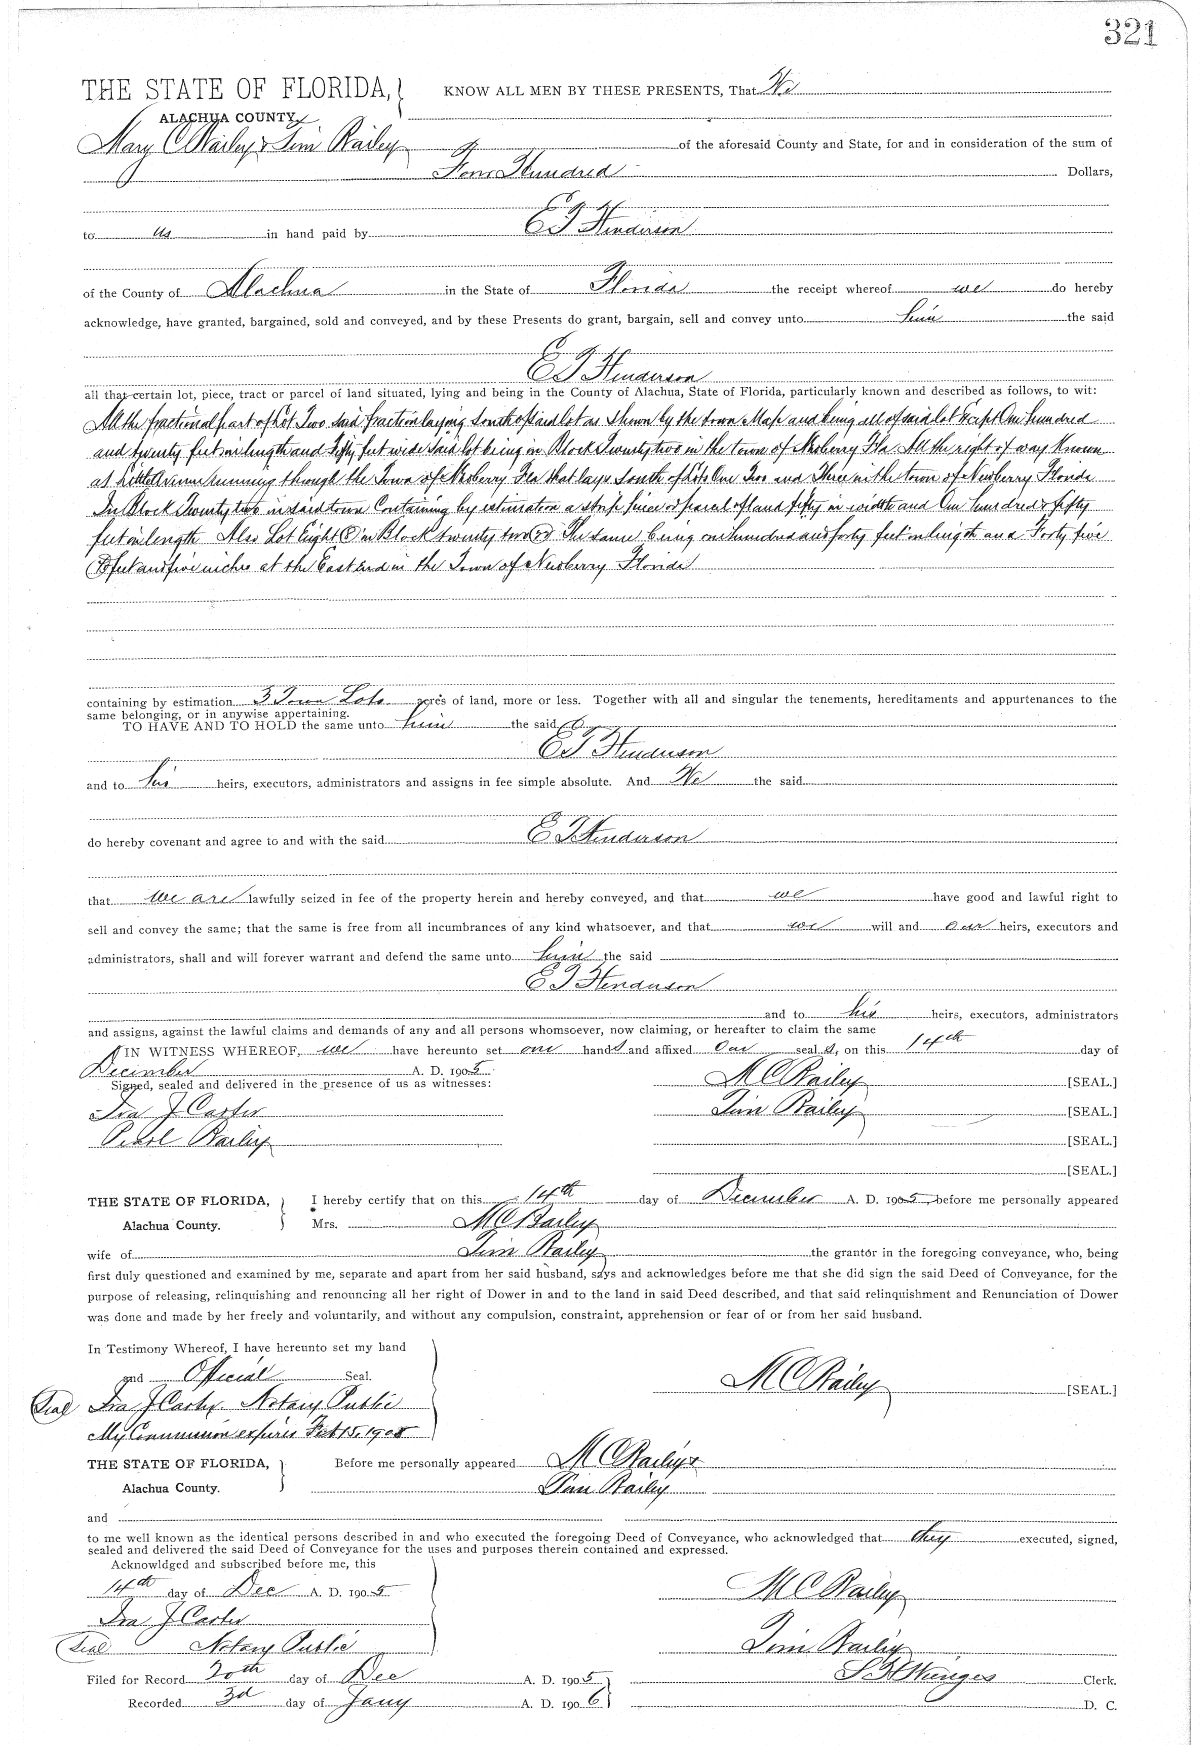 321
THE STATE OF FLORIDA, KNOW ALL MEN BY THESE PRESENTS, That We
ALACHUA COUNTY.
Mary C Railey & Tim Railey of the aforesaid County and State, for and in consideration of the sum of
Four Hundred Dollars,
to us in hand paid by E T Henderson
of the County of Alachua in the State of Florida the receipt whereof we do hereby
acknowledge, have granted, bargained, sold and conveyed, and by these Presents do grant, bargain, sell and convey unto him the said
E T Henderson
all that certain lot, piece, tract or parcel of land situated, lying and being in the County of Alachua, State of Florida, particularly known and described as follows, to wit:
All the fractional part of Lot Two said fraction laying South of said lot as shown by the town Map and being all of said lot Except One hundred
and twenty feet in length and Fifty feet wide Said lot being in Block Twenty two in the town of Newberry Fla. All the right of way Known
as running through the Town of Newberry Fla that lays South of Lots One Two and Three in the town of Newberry Florida
In Block Twenty two in said town Containing by estimation a strip piece or parcel of land fifty in width and One hundred & fifty
feet in length Also Lot Eight (8) in Block twenty two (22) The same being one hundred and forty feet in length and Forty five
feet and five inches at the East end in the Town of Newberry Florida
containing by estimation 3 Town Lots acres of land, more or less. Together with all and singular the tenements, hereditaments and appurtenances to the
same belonging, or in anywise appertaining.
TO HAVE AND TO HOLD the same unto him the said
E T Henderson
and to his heirs, executors, administrators and assigns in fee simple absolute. And We the said
do hereby covenant and agree to and with the said E T Henderson
that we are lawfully seized in fee of the property herein and hereby conveyed, and that we have good and lawful right to
sell and convey the same; that the same is free from all incumbrances of any kind whatsoever, and that we will and our heirs, executors and
administrators, shall and will forever warrant and defend the same unto him the said
E T Henderson
and to his heirs, executors, administrators
and assigns, against the lawful claims and demands of any and all persons whomsoever, now claiming, or hereafter to claim the same
IN WITNESS WHEREOF, we have hereunto set our hands and affixed Our seals, on this 14th day of
December A. D. 1905
Signed, sealed and delivered in the presence of us as witnesses: M C Railey [SEAL.]
Ira J Carter Tim Railey [SEAL.]
Pearl Railey [SEAL.]
[SEAL.]
THE STATE OF FLORIDA, I hereby certify that on this 14th day of December A. D. 1905, before me personally appeared
Alachua County. Mrs. M C Railey
wife of Tim Railey the grantor in the foregoing conveyance, who, being
first duly questioned and examined by me, separate and apart from her said husband, says and acknowledges before me that she did sign the said Deed of Conveyance, for the
purpose of releasing, relinquishing and renouncing all her right of Dower in and to the land in said Deed described, and that said relinquishment and Renunciation of Dower
was done and made by her freely and voluntarily, and without any compulsion, constraint, apprehension or fear of or from her said husband.
In Testimony Whereof, I have hereunto set my hand
and Official Seal. M C Railey [SEAL.]
Seal Ira J Carter Notary Public
My Commission expires Feb 15, 1908
THE STATE OF FLORIDA, Before me personally appeared M C Railey &
Alachua County. Tim Railey
and
to me well known as the identical persons described in and who executed the foregoing Deed of Conveyance, who acknowledged that they executed, signed,
sealed and delivered the said Deed of Conveyance for the uses and purposes therein contained and expressed.
Acknowldged and subscribed before me, this
14th day of Dec A. D. 1905 M C Railey
Ira J Carter
Seal Notary Public Tim Railey
Filed for Record 20th day of Dec A. D. 1905 S H Wienges Clerk.
Recorded 3d day of Jany A. D. 1906 D. C.